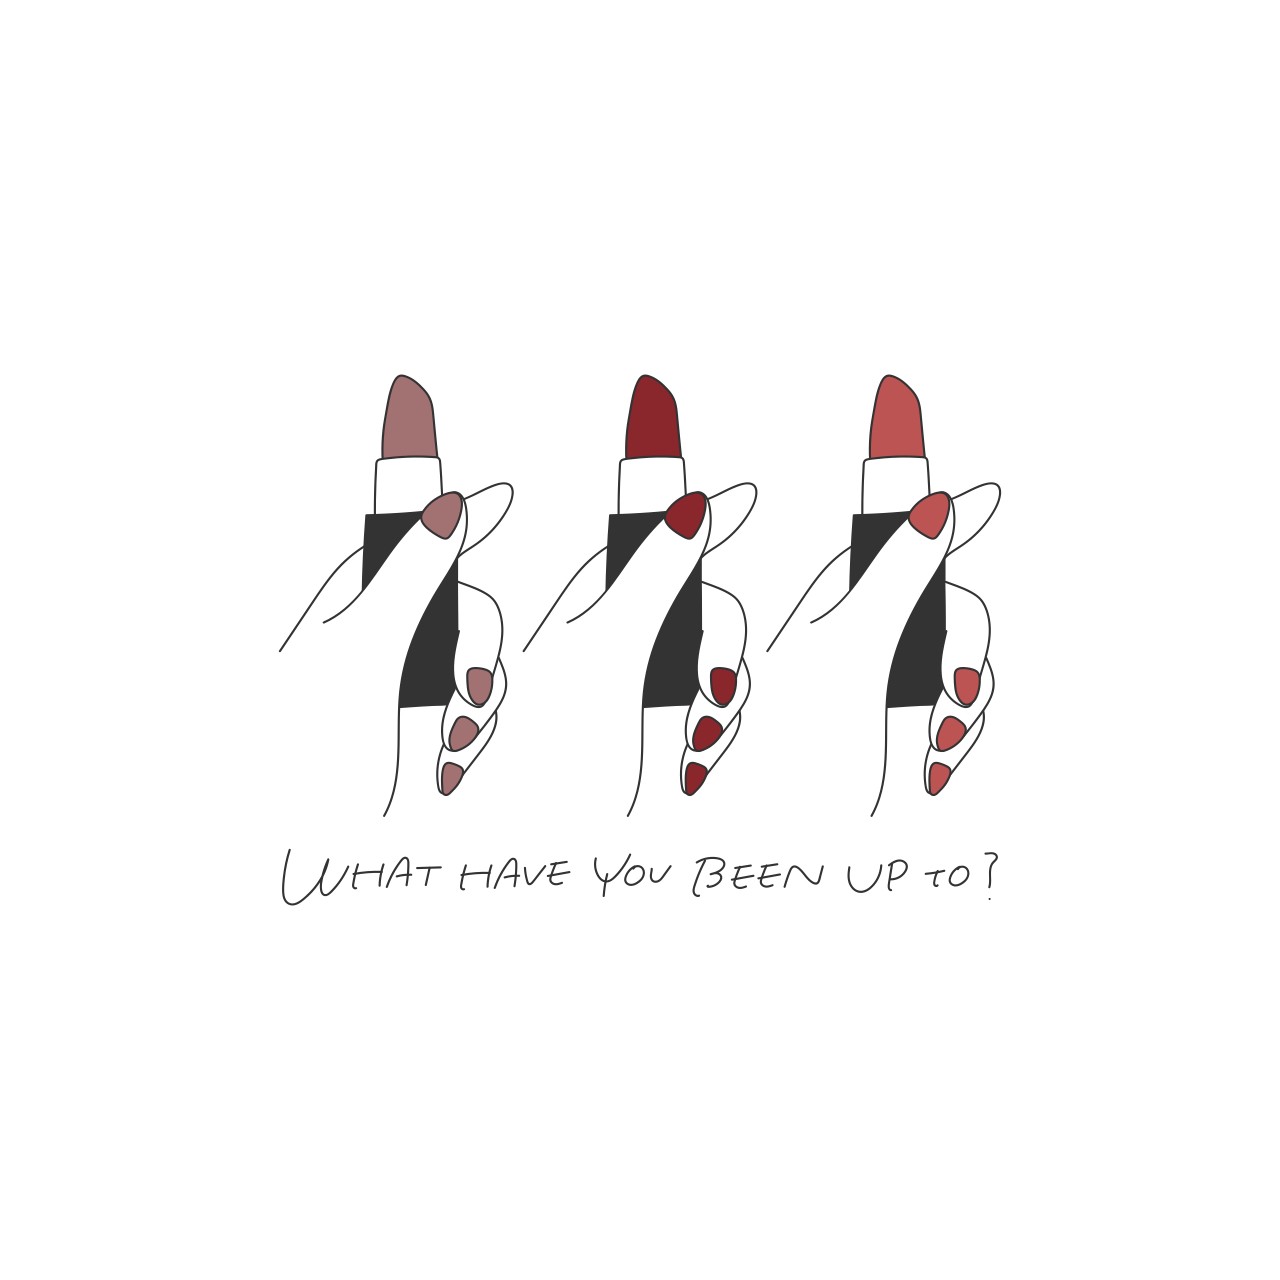 WHAT HAVE YOU BEEN UP TO?